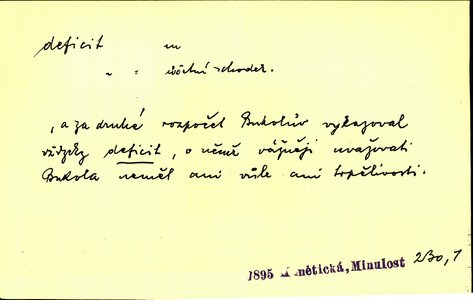 deficit m
" = účetní schodek.
„a za druhé rozpočet Bukolův vykazoval
vždycky deficit, o němž vážněji uvažovati
Bukola neměl ani vůle ani trpělivosti.
1895 nětická, Minulost 230,1